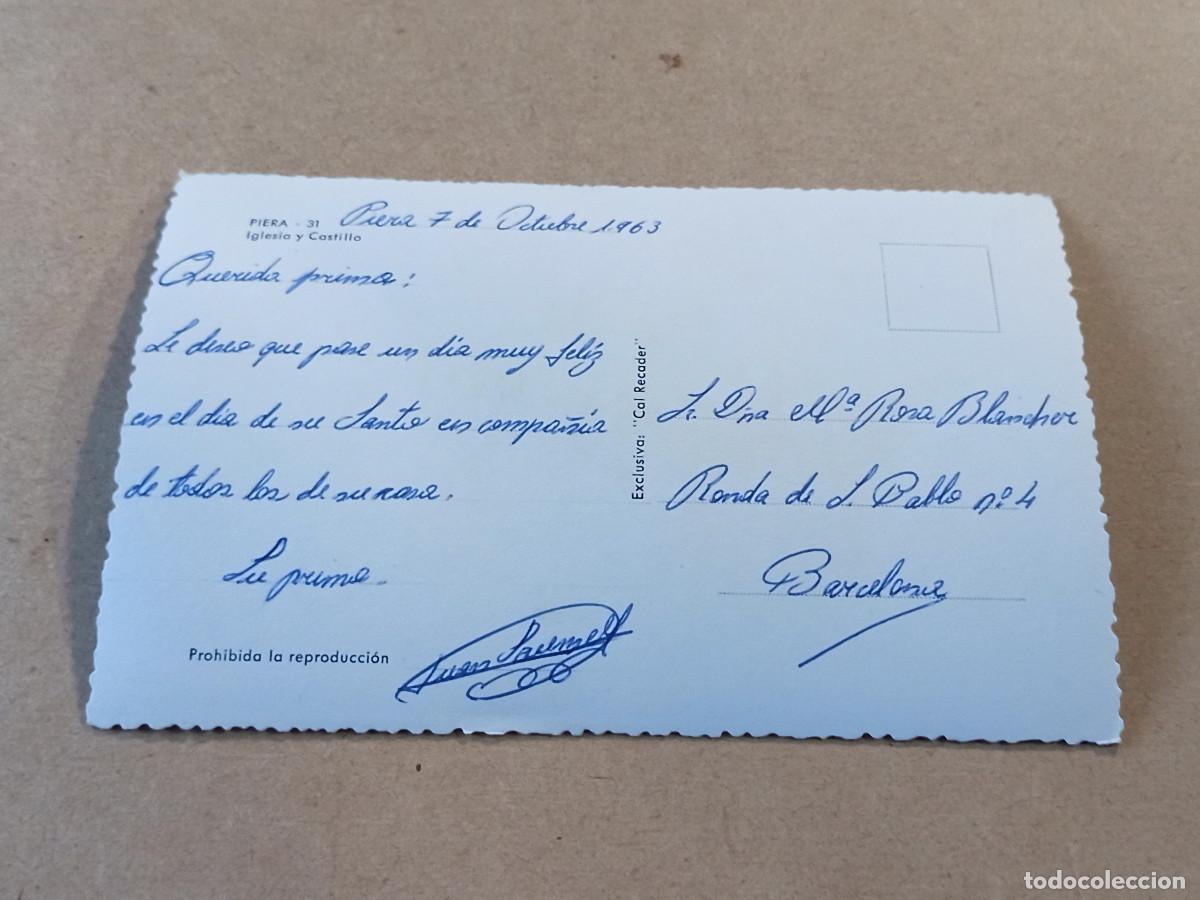 PIERA - 31
Iglesia y Castillo
Piera 7 de Octubre 1.963
Querida prima:
Le deseo que pase un día muy felíz
en el día de su Santo en compañía
de todos los de su casa.
Su primo.
Juan
Prohibida la reproducción
Exclusiva: "Cal Recader"
Sr. Dña Mª Rosa
Ronda de S. Pablo nº 4
Barcelona
todocoleccion